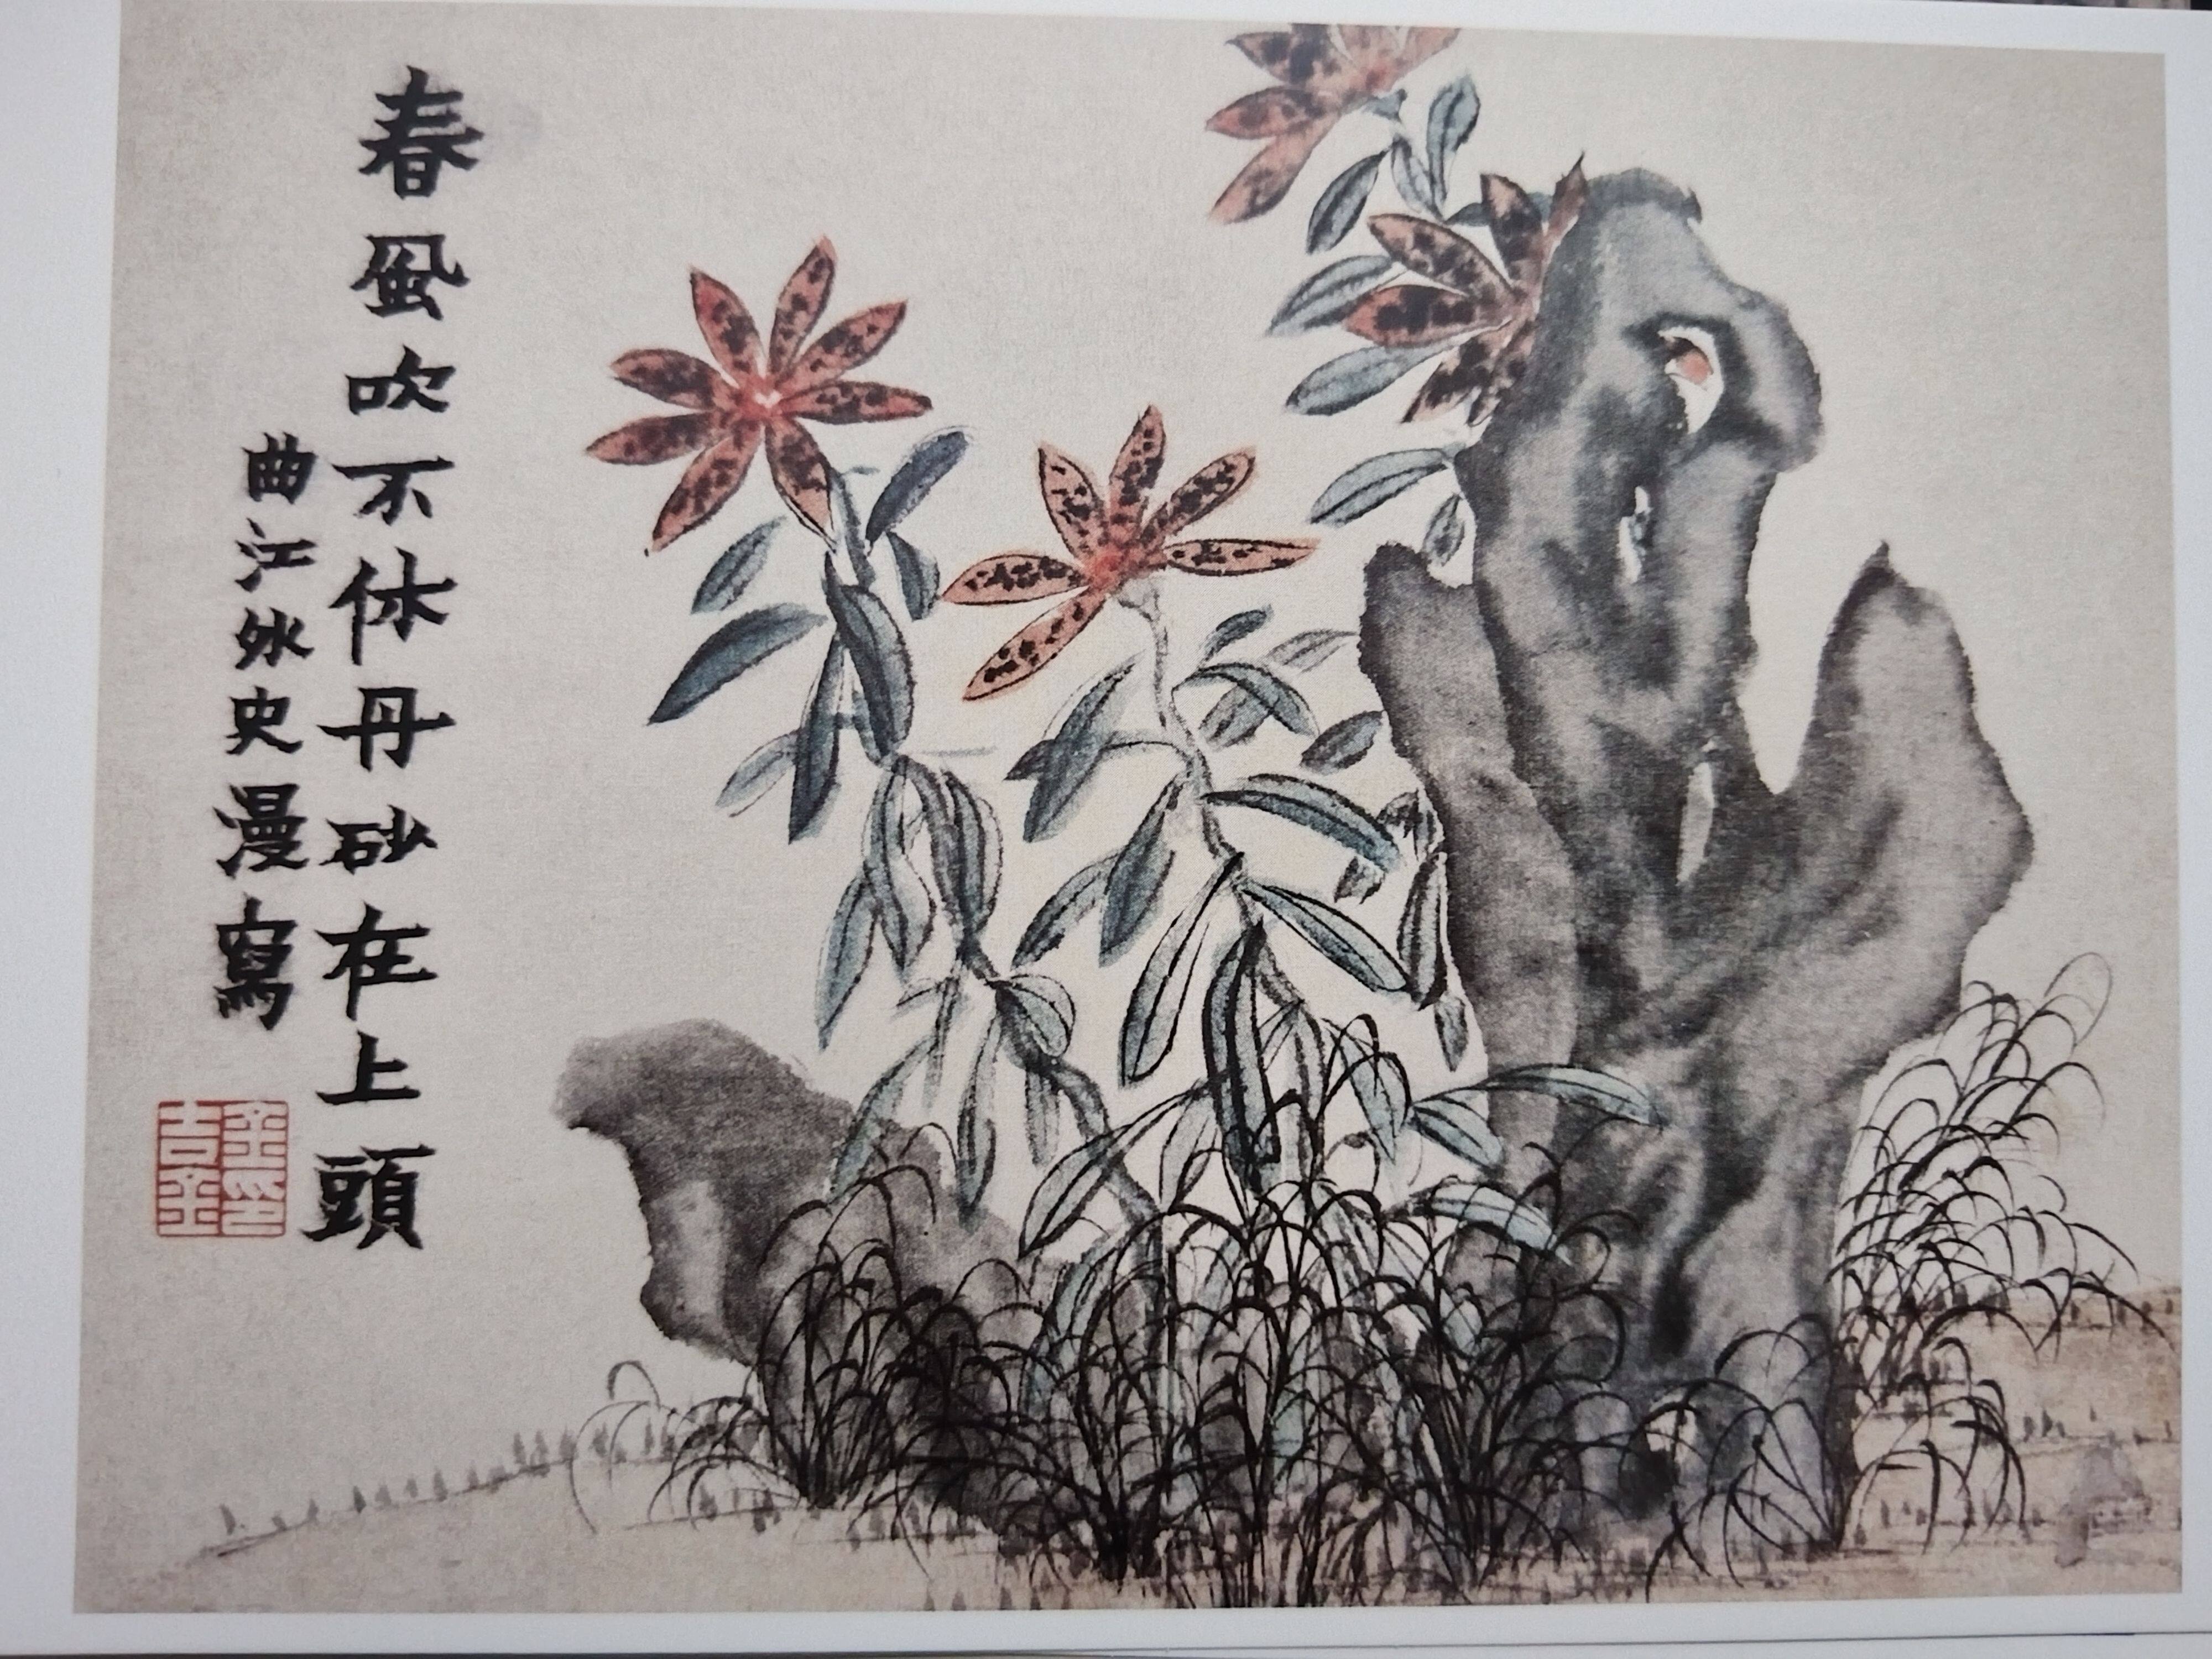 春風吹不休丹砂在上頭
曲江外史漫寫